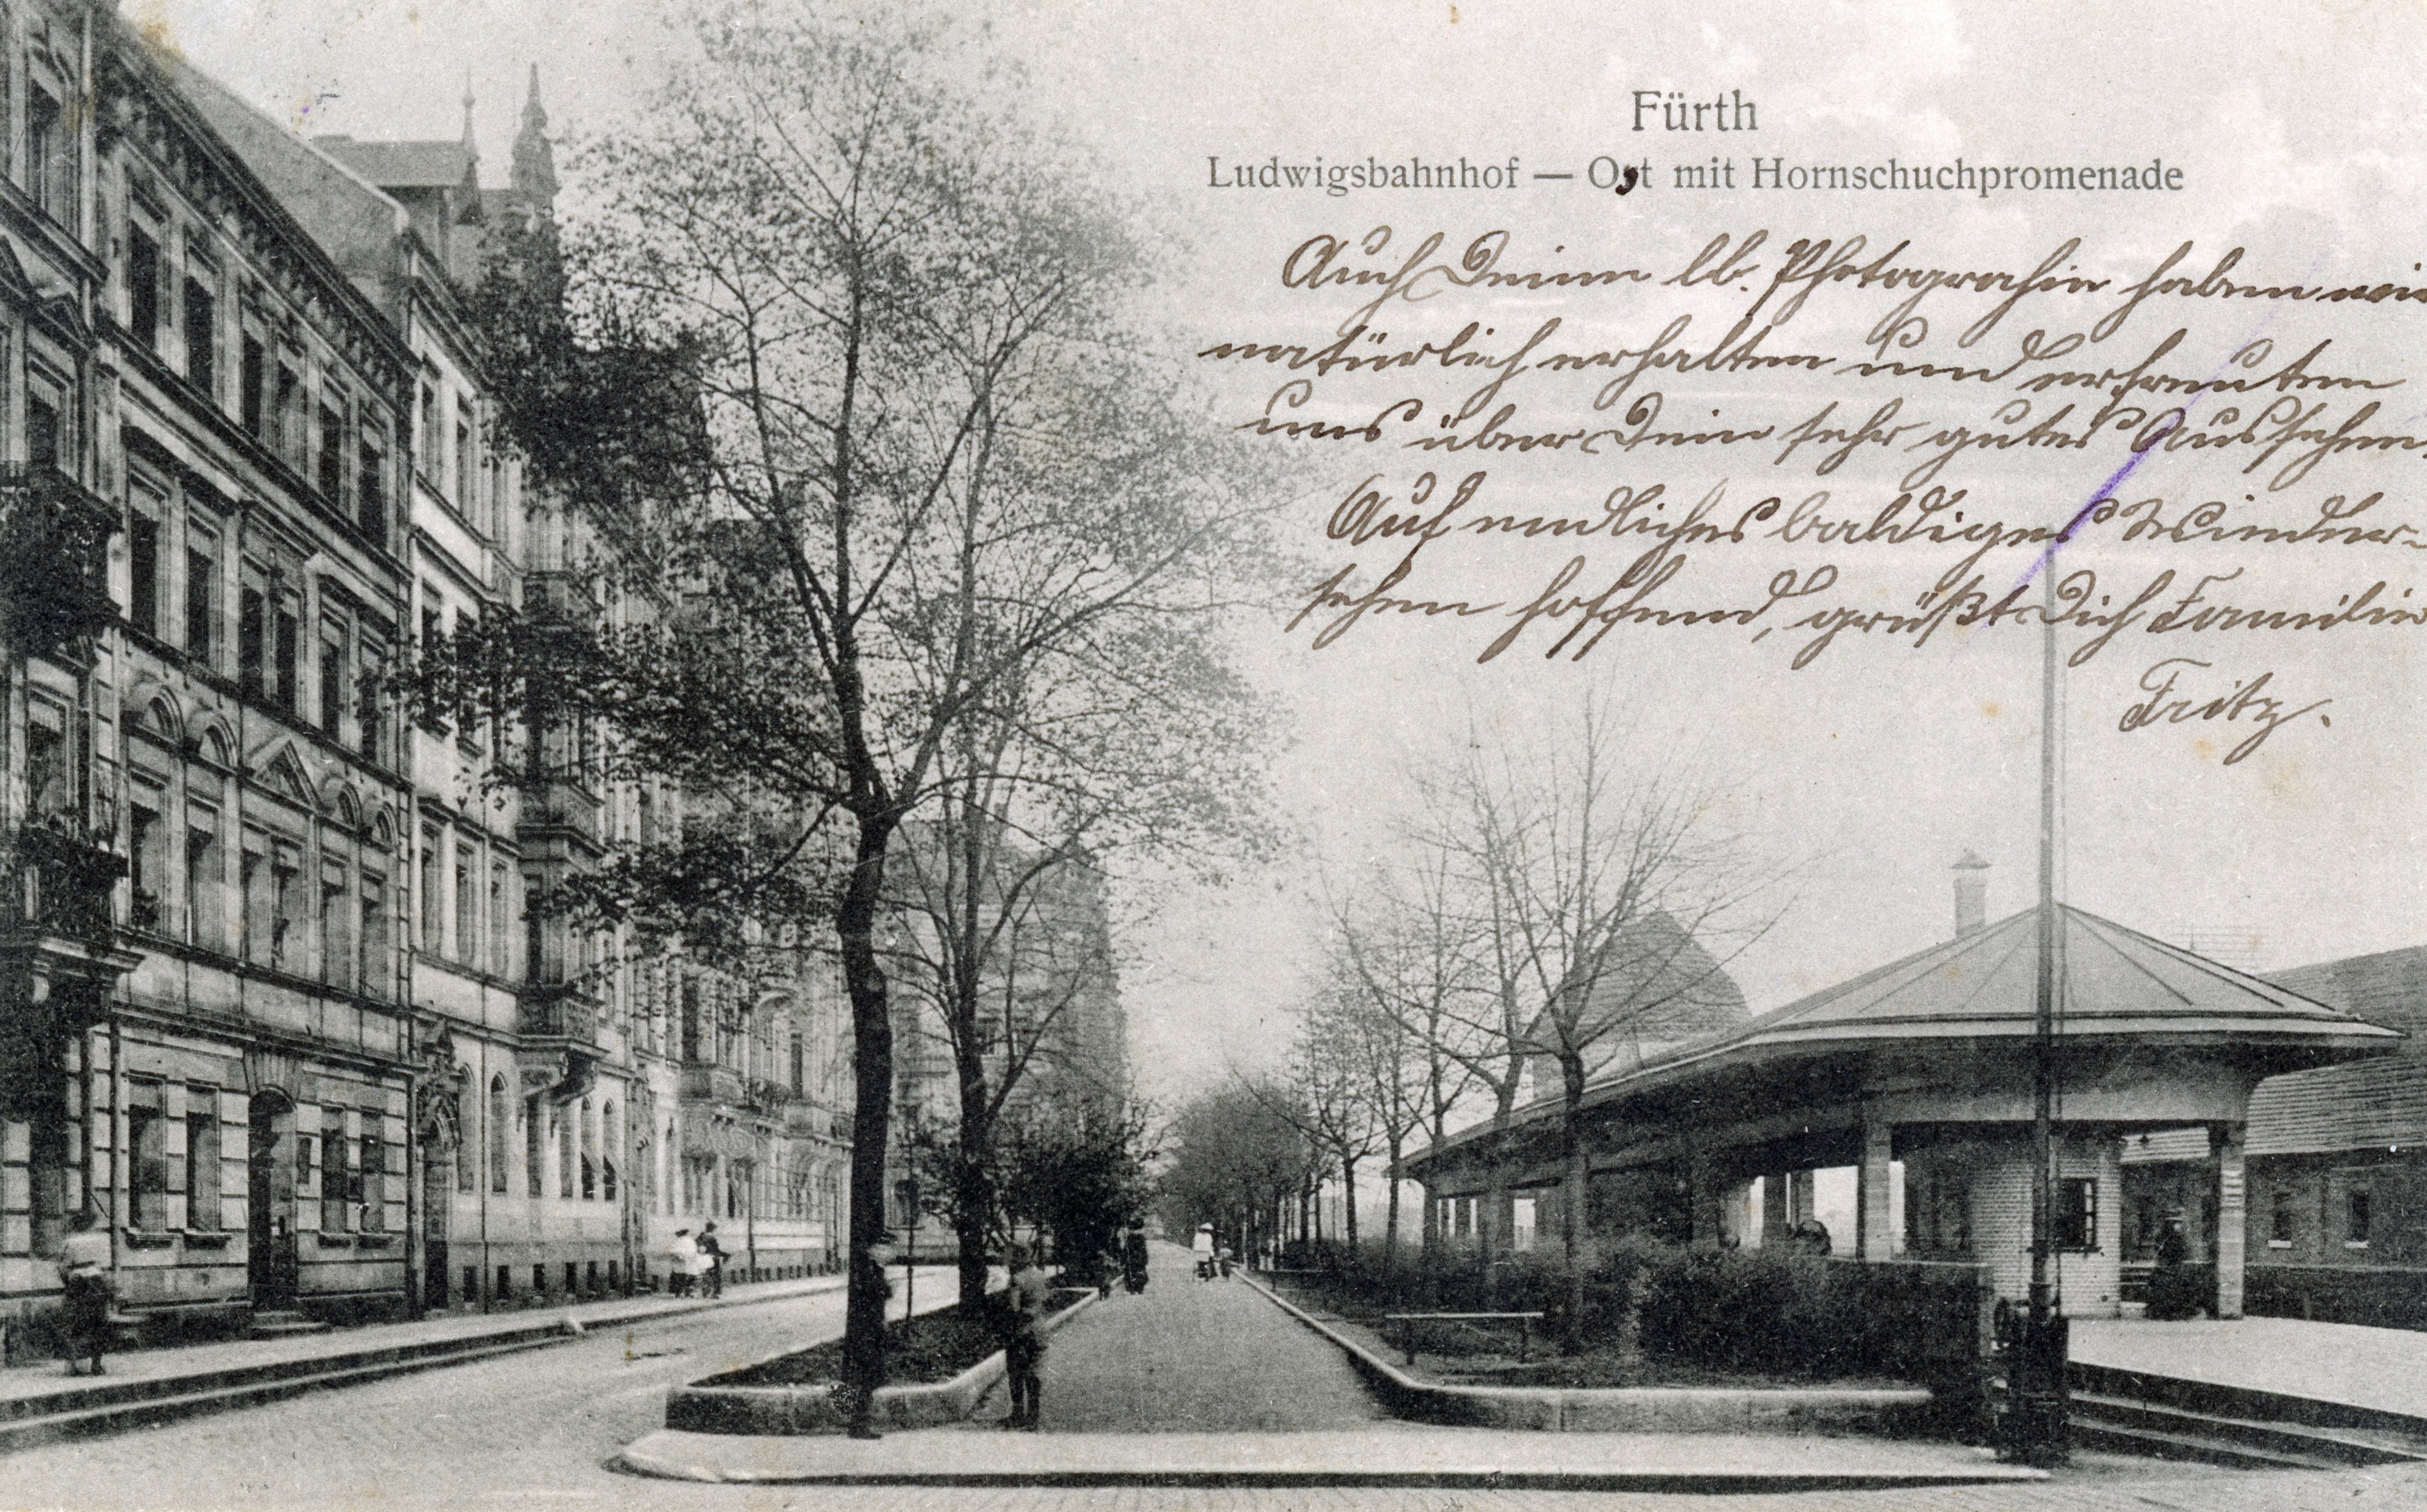 Fürth
Ludwigsbahnhof — Ost mit Hornschuchpromenade
Auch Deine lb. Photograhie haben wir
natürlich erhalten und erfreuten
uns über Dein sehr gutes Aussehen.
Auf endliches baldiges Wieder-
sehen hoffend, grüßt Dich Familie
Fritz.